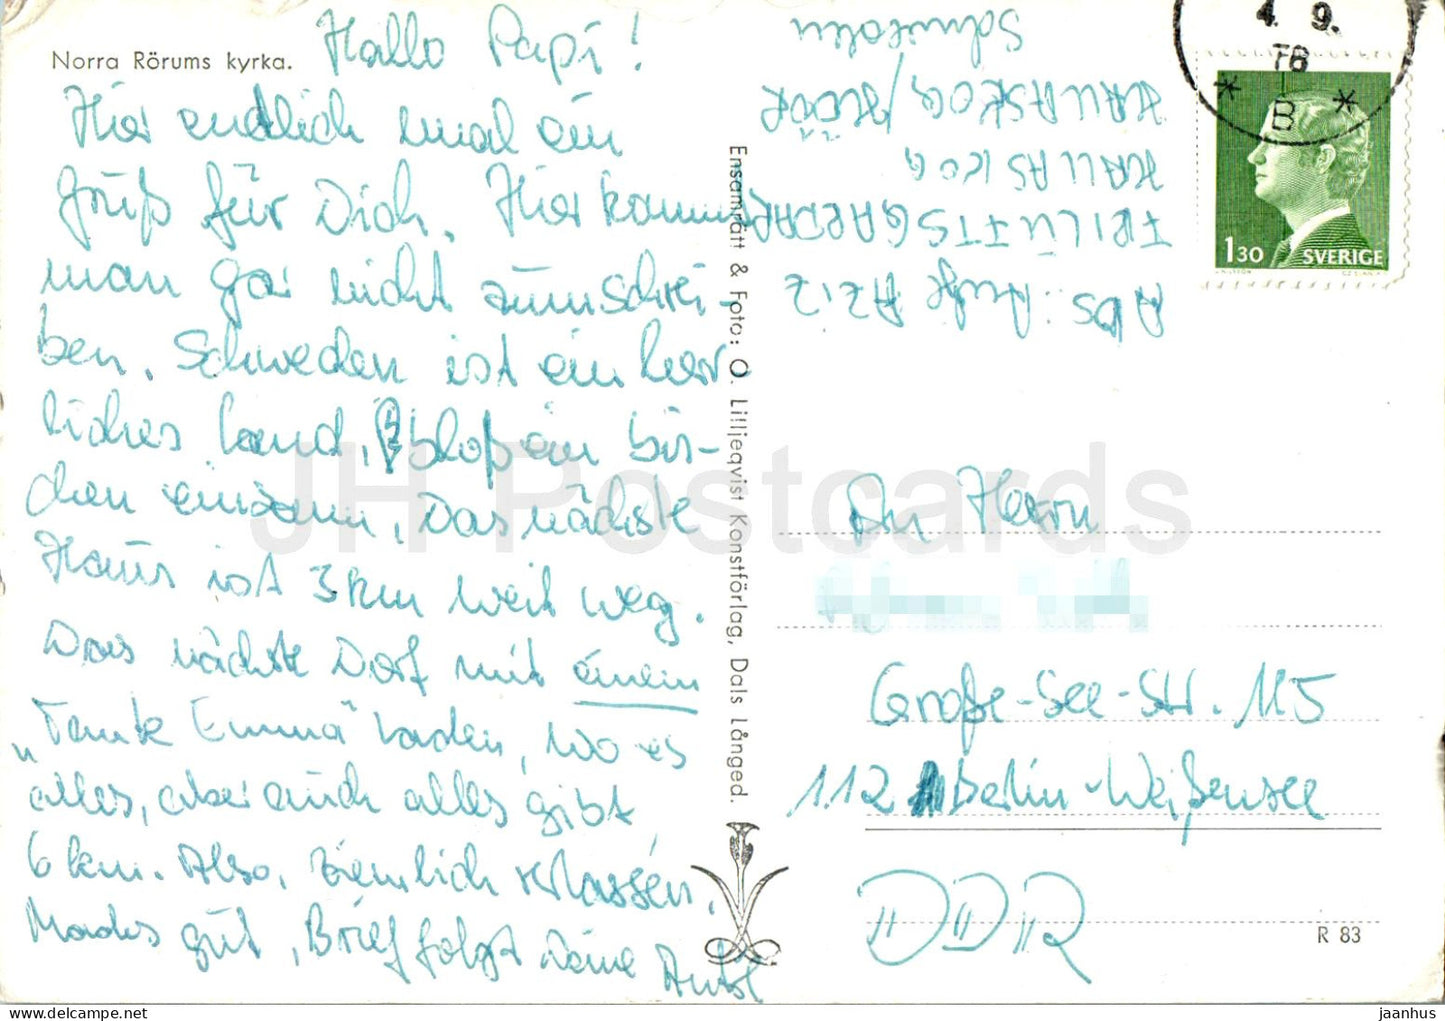 Norra Rörums kyrka.
Hallo Papi!
Hier endlich mal ein
Gruß für Dich. Hier kommt
man gar nicht zum Schrei-
ben. Schweden ist ein herr-
liches Land, bloß ein bis-
chen einsam, Das nächste
Haus ist 3 km weit weg.
Das nächste Dorf mit einem
„Tante Emma" Laden, wo es
alles, aber auch alles gibt
6 km. Also, ziemlich verlassen.
Machs gut, Brief folgt Deine Antje
Ensamrätt & Foto: O. Lilljeqvist Konstförlag, Dals Långed.
ADS: Antje AZIZ
FRILUFTSGÅRDAR
HALLASKOG
HALLASKOG/HÖÖR
Schweden
4. 9.
78
* B *
130 SVERIGE
An Herrn
Große-See-Str. 115
112 Berlin-Weißensee
DDR
R 83
JH Postcards
jaanhus